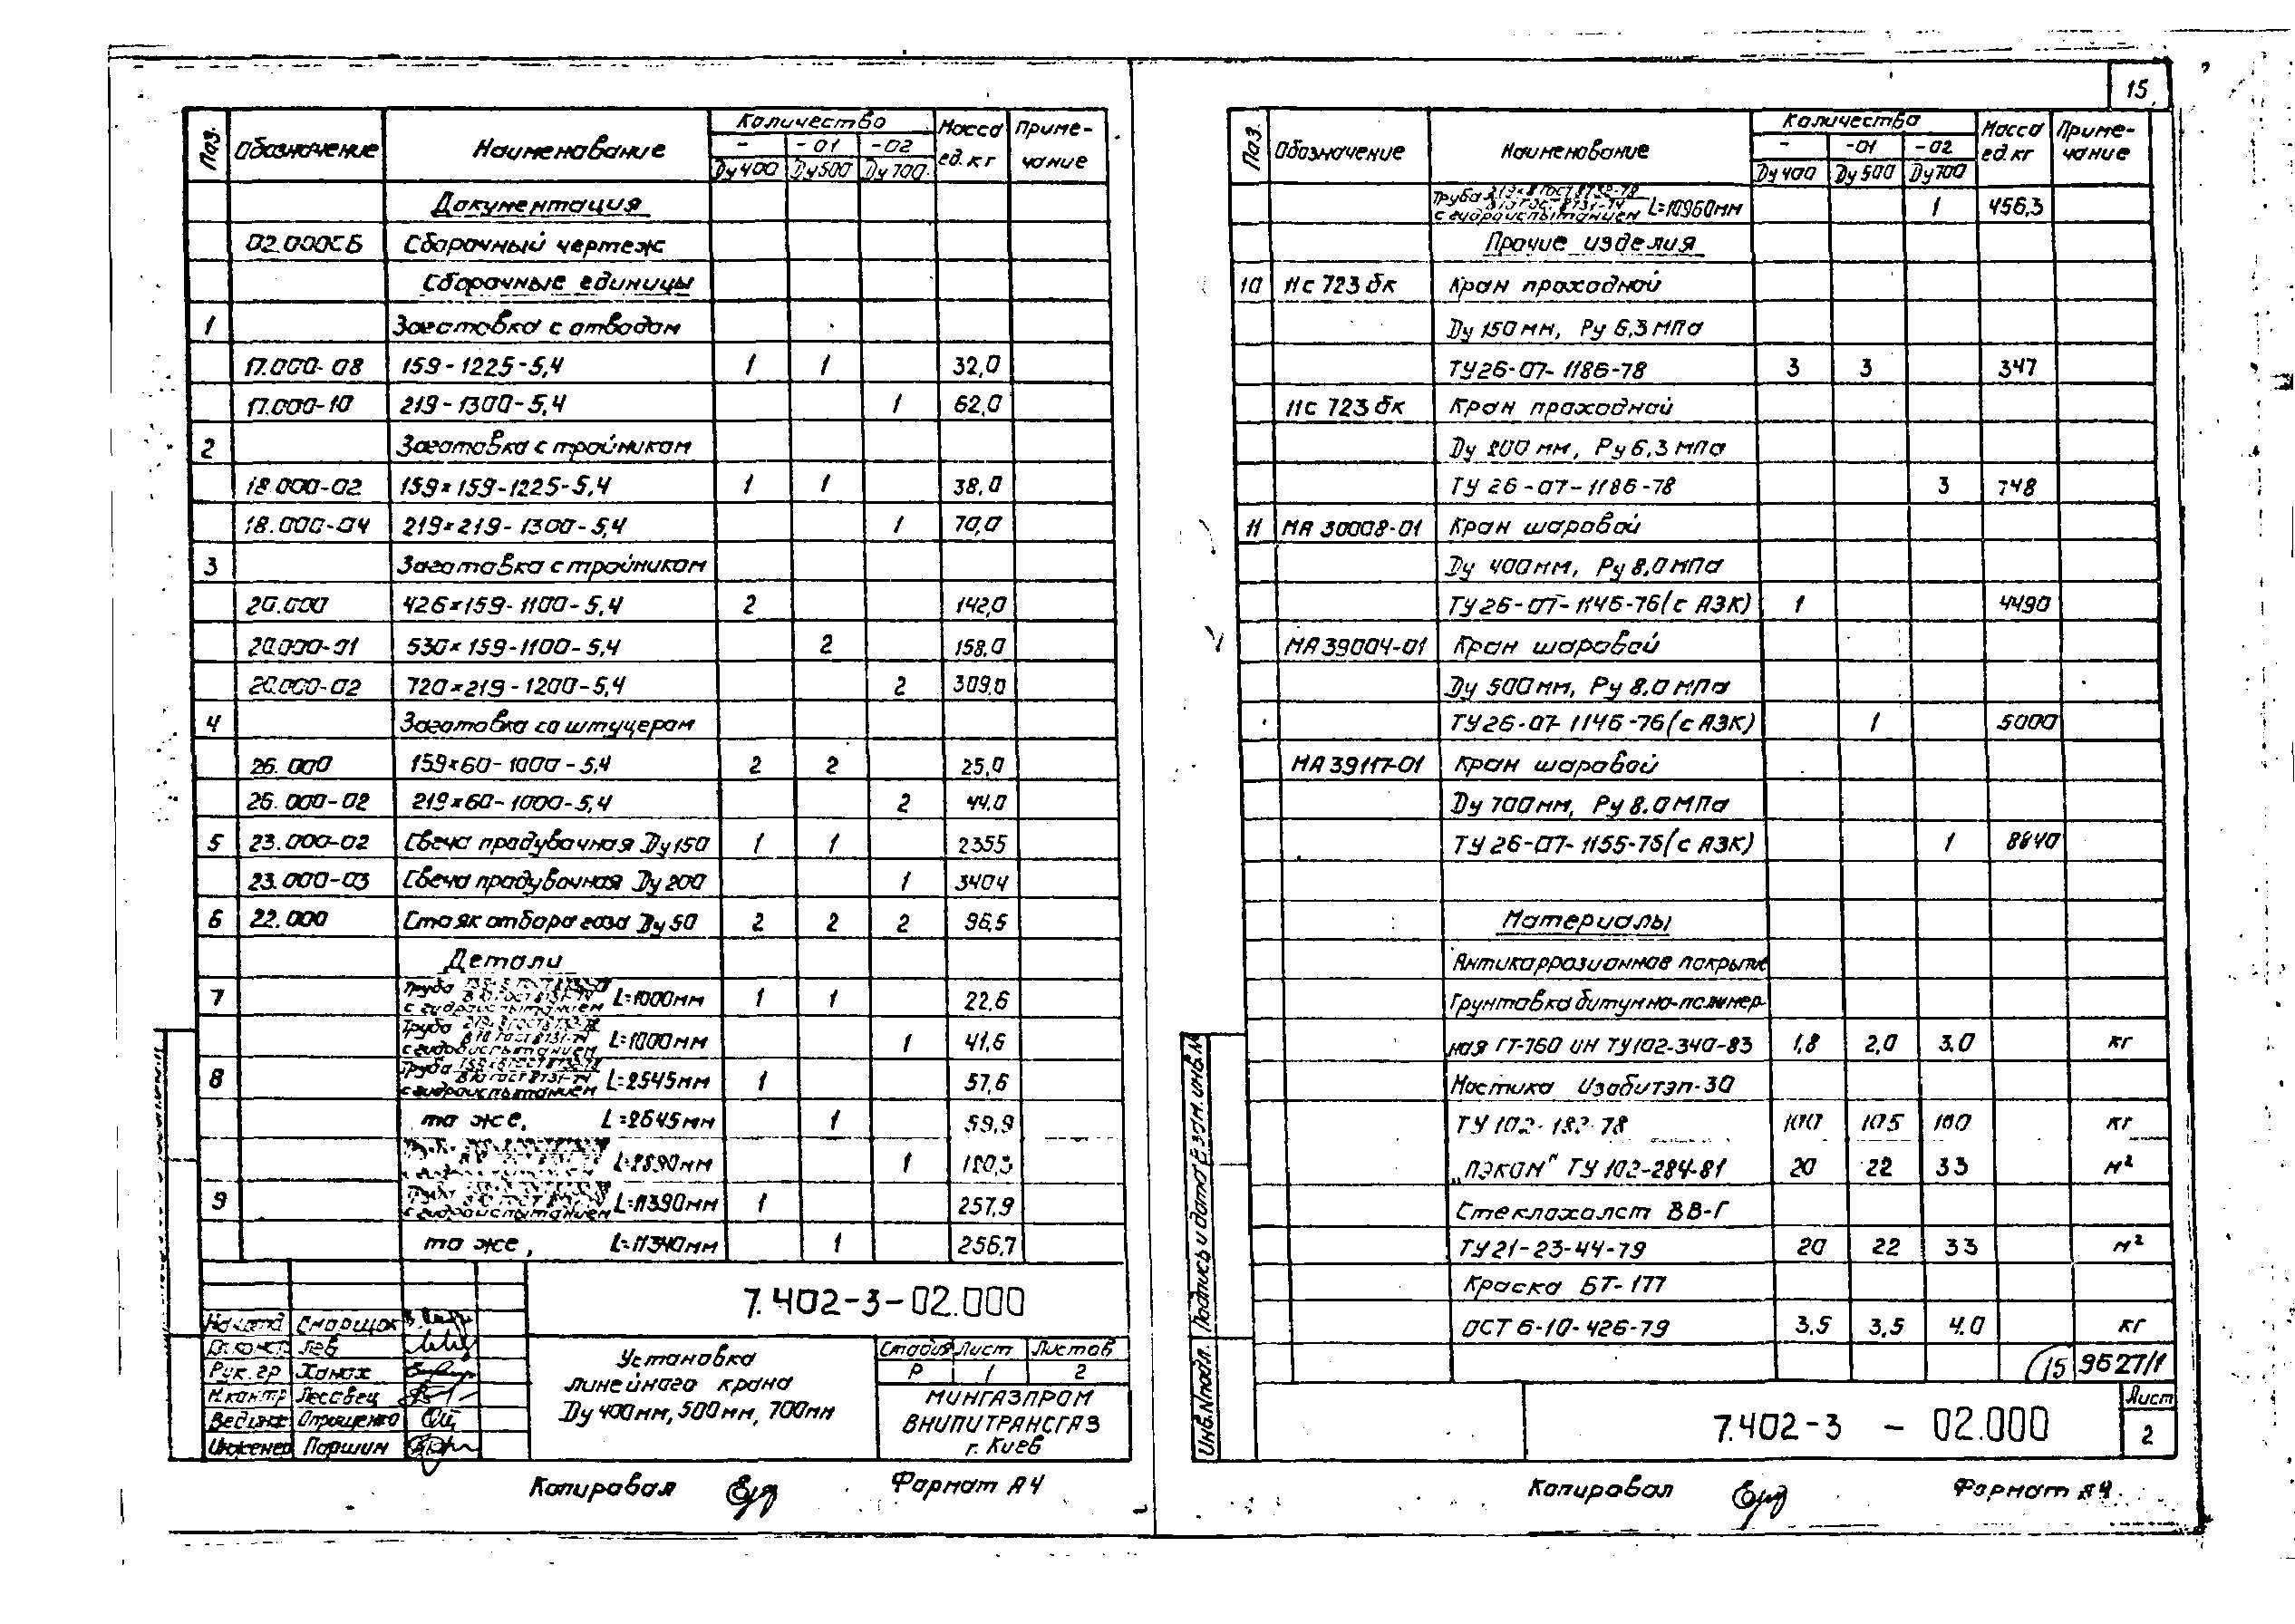 Поз. Обозначение Наименование Количество Масса ед. кг Приме-чание
- -01 -02
Ду 400 Ду 500 Ду 700
Документация
02.000СБ Сборочный чертеж
Сборочные единицы
1 Заготовка с отводом
17.000-08 159-1225-5,4 1 1 32,0
17.000-10 219-1300-5,4 1 62,0
2 Заготовка с тройником
18.000-02 159×159-1225-5,4 1 1 38,0
18.000-04 219×219-1300-5,4 1 70,0
3 Заготовка с тройником
20.000 426×159-1100-5,4 2 142,0
20.000-01 530×159-1100-5,4 2 158,0
20.000-02 720×219-1200-5,4 2 309,0
4 Заготовка со штуцером
26.000 159×60-1000-5,4 2 2 25,0
26.000-02 219×60-1000-5,4 2 44,0
5 23.000-02 Свеча продувочная Ду 150 1 1 2355
23.000-03 Свеча продувочная Ду 200 1 3404
6 22.000 Стояк отбора газа Ду 50 2 2 2 96,5
Детали
7 Труба с гидроиспытанием L=1000мм 1 1 22,6
Труба с гидроиспытанием L=1000мм 1 41,6
8 Труба с гидроиспытанием L=2545мм 1 57,6
то же, L=2645мм 1 59,9
L=2890мм 1 120,3
9 Труба с гидроиспытанием L=11390мм 1 257,9
то же, L=11340мм 1 256,7
7.402-3-02.000
Нач. отд Сморщок
Гл. констр. Лев
Рук. гр Ханах
Н.контр Лесовец
Вед. инж Опрощенко
Инженер Паршин
Установка
линейного крана
Ду 400мм, 500мм, 700мм
Стадия Лист Листов
Р 1 2
МИНГАЗПРОМ
ВНИПИТРАНСГАЗ
г. Киев
Копировал Формат А4
15
Поз. Обозначение Наименование Количество Масса ед. кг Приме-чание
- -01 -02
Ду 400 Ду 500 Ду 700
Труба 219×8 ГОСТ 8732-78 В10 ГОСТ 8731-74 с гидроиспытанием L=10960мм 1 456,3
Прочие изделия
10 11с 723 бк Кран проходной
Ду 150 мм, Ру 6,3 МПа
ТУ 26-07-1186-78 3 3 347
11с 723 бк Кран проходной
Ду 200 мм, Ру 6,3 МПа
ТУ 26-07-1186-78 3 748
11 МА 30008-01 Кран шаровой
Ду 400мм, Ру 8,0 МПа
ТУ 26-07-1146-76 (с АЗК) 1 4490
МА 39004-01 Кран шаровой
Ду 500мм, Ру 8.0 МПа
ТУ 26-07-1146-76 (с АЗК) 1 5000
МА 39117-01 Кран шаровой
Ду 700мм, Ру 8.0 МПа
ТУ 26-07-1155-75 (с АЗК) 1 8840
Материалы
Антикоррозионное покрытие
Грунтовка битумно-полимер-
ная ГТ-760 ИН ТУ102-340-83 1,8 2,0 3,0 кг
Мастика Изобитэп-30
ТУ 102-182-78 100 105 160 кг
„ПЭКОМ" ТУ 102-284-81 20 22 33 м²
Стеклохолст ВВ-Г
ТУ 21-23-44-79 20 22 33 м²
Краска БТ-177
ОСТ 6-10-426-79 3,5 3,5 4.0 кг
15 9527/1
7.402-3 - 02.000
Лист
2
Инв.№подл. Подпись и дата Взам.инв.№
Копировал Формат А4